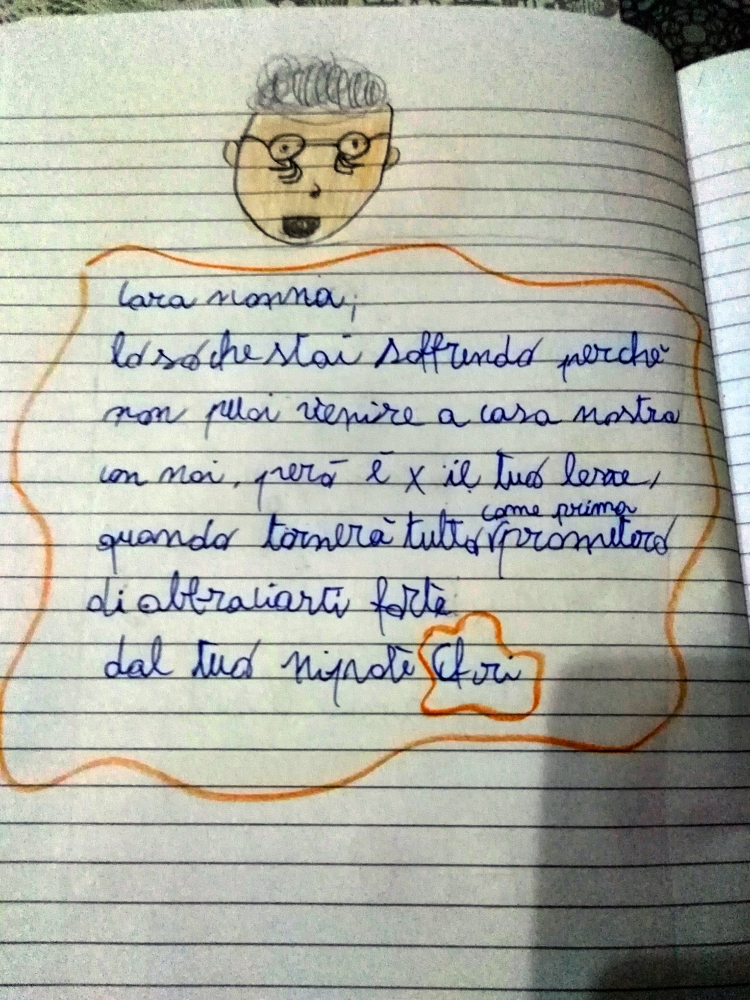 Cara nonna,
lo so che stai soffrendo perché
non puoi venire a casa nostra
con noi, però è x il tuo bene,
quando tornerà tutto come prima prometterò
di abbraciarti forte
dal tuo nipote